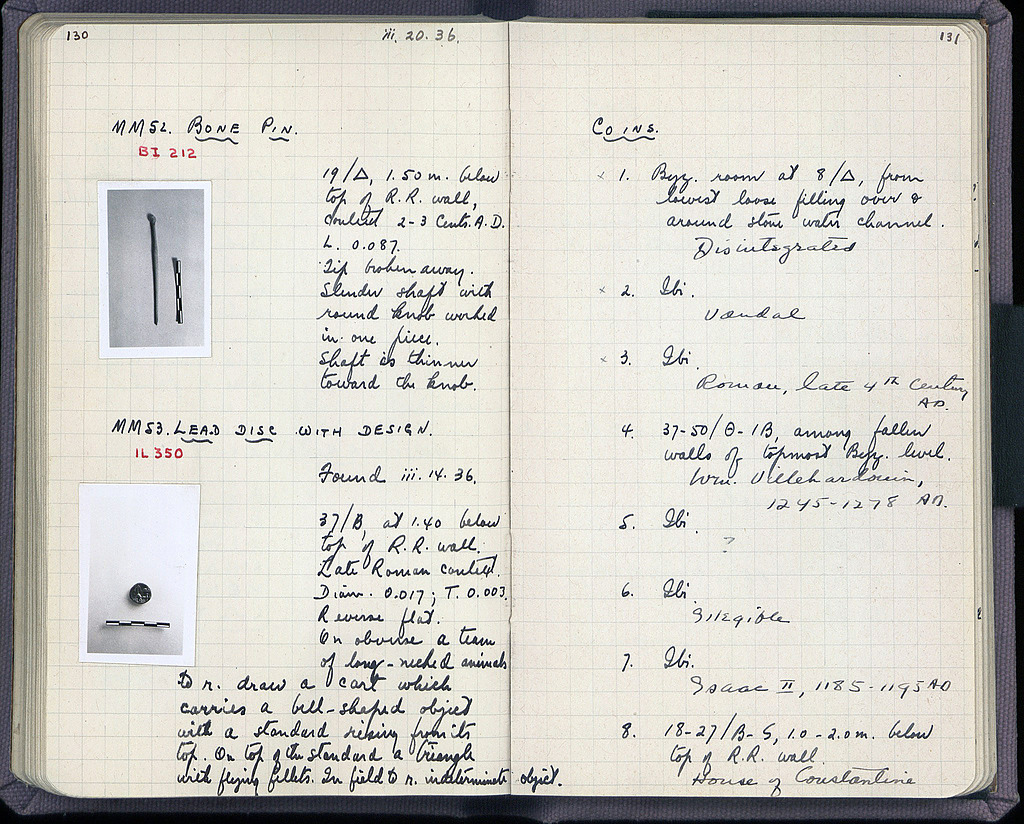 130
iii. 20. 36.
MM52. BONE PIN.
BI 212
19/Δ, 1.50 m. below
top of R.R. wall,
context 2-3 Cents. A.D.
L. 0.087.
Tip broken away.
Slender shaft with
round knob worked
in one piece.
Shaft is thinner
toward the knob.
MM53. LEAD DISC WITH DESIGN.
IL 350
Found iii. 14. 36.
37/B, at 1.40 below
top of R.R. wall.
Late Roman context.
Diam. 0.017; T. 0.003.
Reverse flat.
On obverse a team
of long-necked animals
to r. draw a cart which
carries a bell-shaped object
with a standard rising from its
top. On top of the standard a triangle
with flying fillets. In field to r. indeterminate object.
131
COINS.
x 1. Byz. room at 8/Δ, from
lowest loose filling over &
around stone water channel.
Disintegrated
x 2. Ibi.
Vandal
x 3. Ibi.
Roman, late 4th century
AD.
4. 37-50/Θ-1B, among fallen
walls of topmost Byz. level.
Wm. Villehardouin,
1245-1278 AD.
5. Ibi.
?
6. Ibi.
Illegible
7. Ibi.
Isaac II, 1185-1195 AD
8. 18-27/B-S, 1.0-2.0 m. below
top of R.R. wall.
House of Constantine